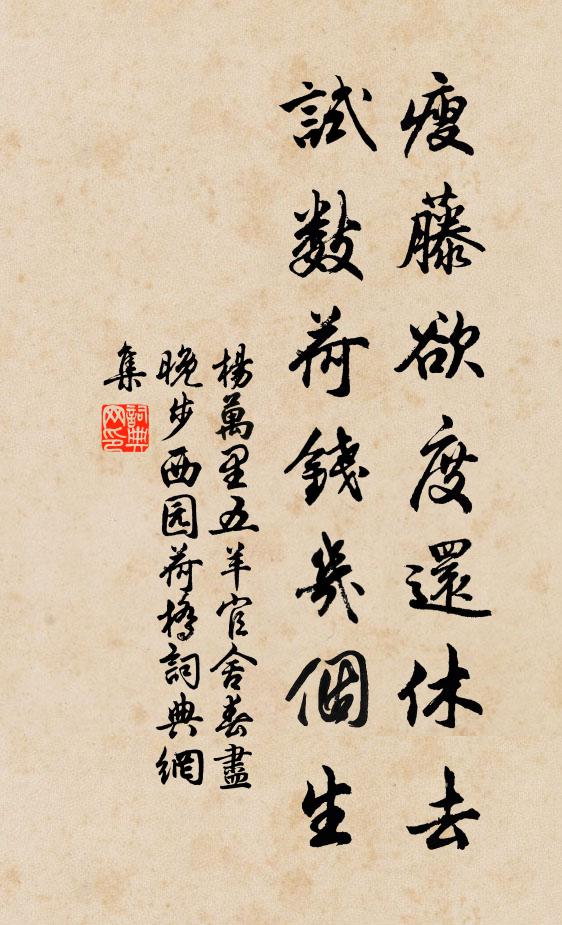 瘦藤欲度還休去
試數荷錢幾個生
楊萬里五羊官舍春盡
晚步西园荷橋詞典網
集
詞典
网印